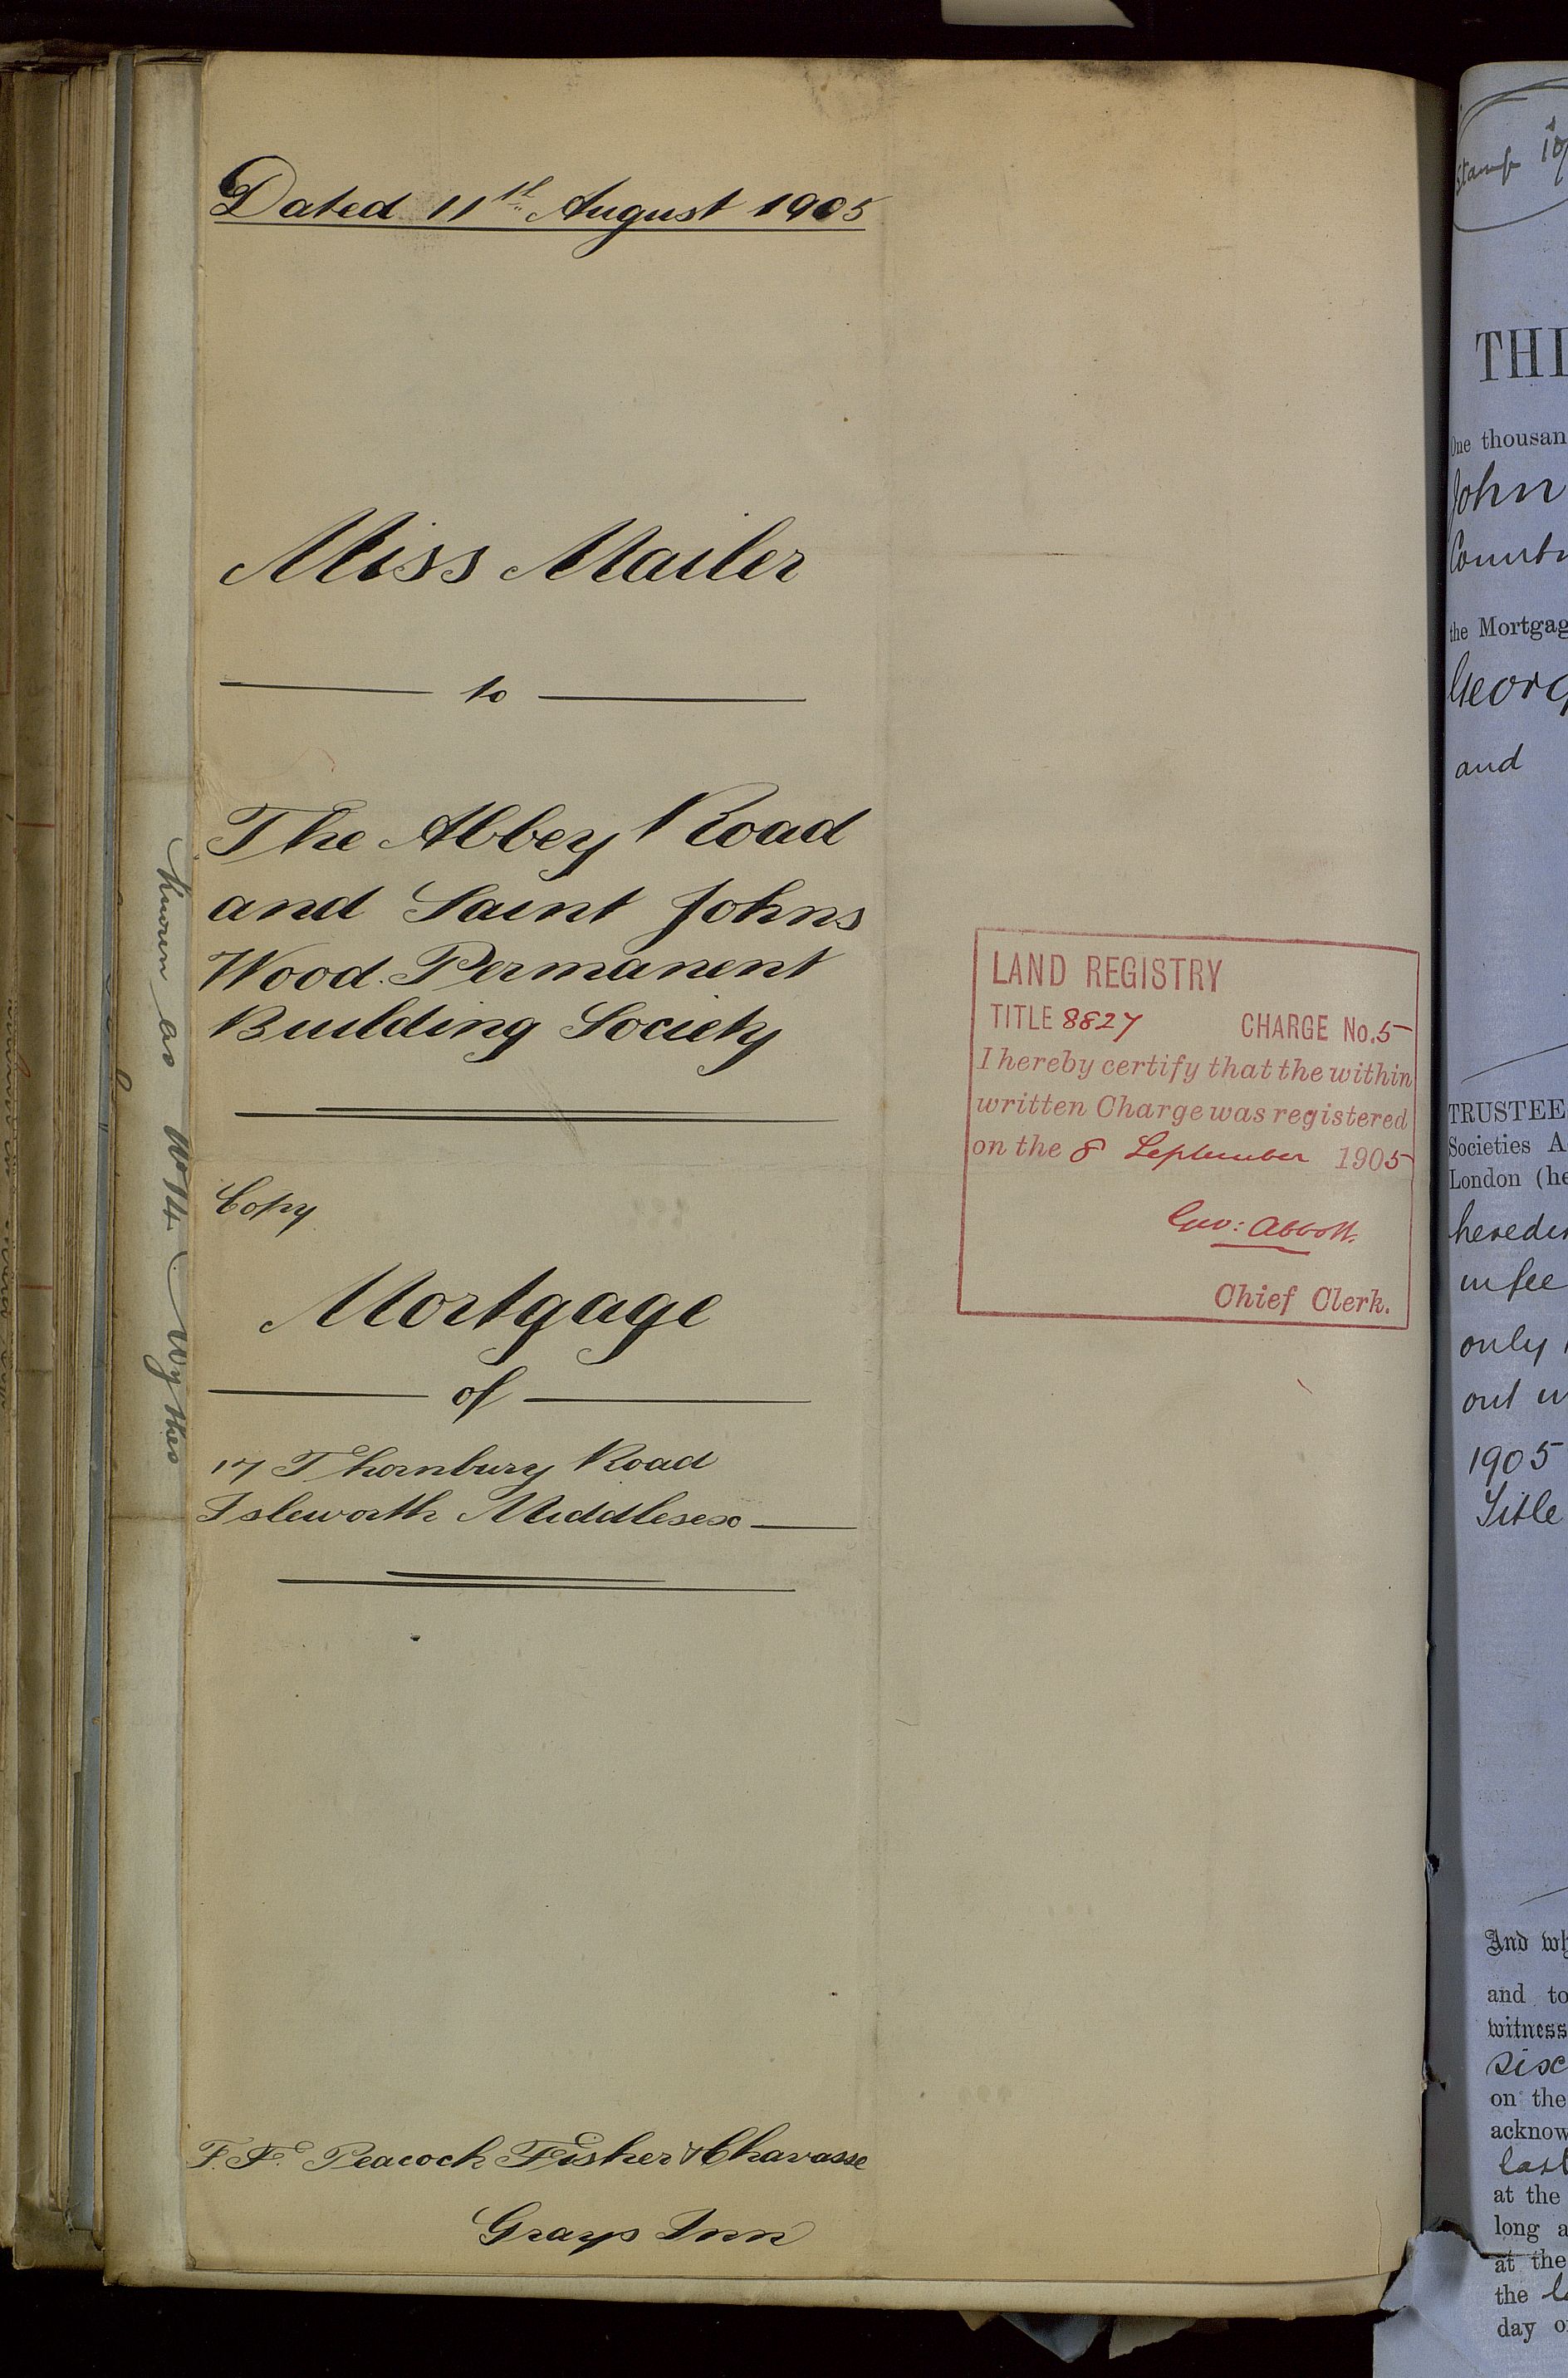 Dated 11th August 1905
Miss Mailer
to
The Abbey Road
and Saint Johns
Wood Permanent
Building Society
Copy
Mortgage
of
17 Thornbury Road
Isleworth Middlesex
F. F. Peacock Fisher & Chavasse
Grays Inn
LAND REGISTRY
TITLE 8827 CHARGE No. 5
I hereby certify that the within
written Charge was registered
on the 8 September 1905
Geo: Abbott.
Chief Clerk.
known as No 14
Stamp 10/
THI
One thousan
John
the Mortgag
Georg
and
TRUSTEE
Societies A
London (he
in fee
only
out
1905
Title
And wh
and to
witness
on the
acknow
last
at the
long a
at the
the
day o